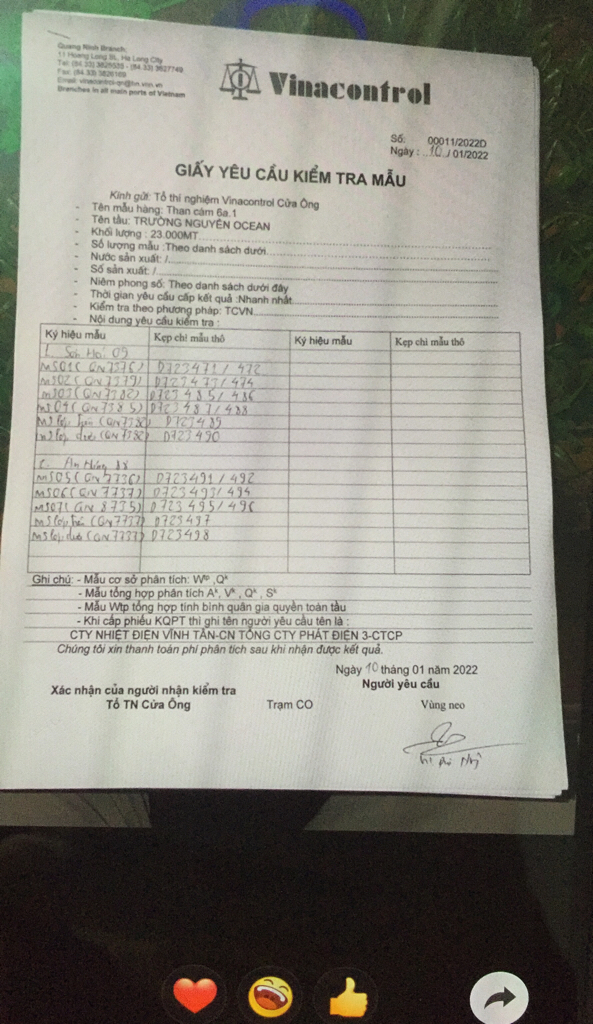 Quang Ninh Branch
11 Hoang Long St., Ha Long City
Tel: (84.33) 3825535 - (84.33) 3827749
Fax: (84.33) 3826169
Email: vinacontrol-qn@hn.vnn.vn
Branches in all main ports of Vietnam
Vinacontrol
Số: 00011/2022D
Ngày : 10 / 01/2022
GIẤY YÊU CẦU KIỂM TRA MẪU
Kính gửi: Tổ thí nghiệm Vinacontrol Cửa Ông
- Tên mẫu hàng: Than cám 6a.1
- Tên tàu: TRƯỜNG NGUYÊN OCEAN
- Khối lượng : 23.000MT
- Số lượng mẫu :Theo danh sách dưới
- Nước sản xuất: /
- Số sản xuất: /
- Niêm phong số: Theo danh sách dưới đây
- Thời gian yêu cầu cấp kết quả :Nhanh nhất
- Kiểm tra theo phương pháp: TCVN
- Nội dung yêu cầu kiểm tra :
Ký hiệu mẫu Kẹp chì mẫu thô Ký hiệu mẫu Kẹp chì mẫu thô
1. 09
MS01(QN7376) D723471/472
MS02(QN7379) D723473/474
MS03(QN7382) D723485/486
MS04(QN7385) D723487/488
(QN7382) D723489
(QN7382) D723490
2.
MS05(QN7736) D723491/492
MS06(QN7737) D723493/494
MS07(QN8735) D723495/496
(QN7737) D723497
(QN7737) D723498
Ghi chú: - Mẫu cơ sở phân tích: Wtp ,Qk
- Mẫu tổng hợp phân tích Ak, Vk , Qk , Sk
- Mẫu Wtp tổng hợp tính bình quân gia quyền toàn tàu
- Khi cấp phiếu KQPT thì ghi tên người yêu cầu tên là :
CTY NHIỆT ĐIỆN VĨNH TÂN-CN TỔNG CTY PHÁT ĐIỆN 3-CTCP
Chúng tôi xin thanh toán phí phân tích sau khi nhận được kết quả.
Ngày 10 tháng 01 năm 2022
Xác nhận của người nhận kiểm tra Người yêu cầu
Tổ TN Cửa Ông Trạm CO Vùng neo